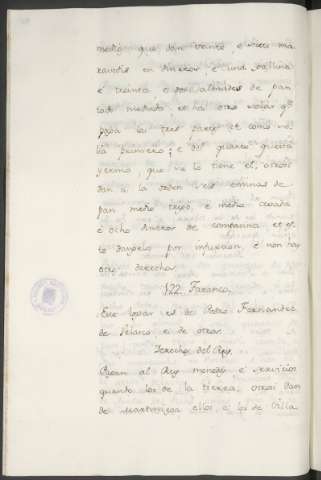 medio que dan veinte, e siete ma
ravedis en dineros, e una gallina
e treinta e dos almudes de pan
todo mediado, et ha otro solar q̃
paga las tres partes et como so
lia primero; e del quarto queda
yermo, que no lo tiene el, otrosi
dan a la orden seis eminas de
pan medio trigo, e media cevada
e ocho dineros de compania et es
to dangelo por infurcion, e non hay
otros derechos
122. Taranco.
Este logar es de Pedro Fernandez
de Velasco e de otros.
Derechos del Rey.
Pagan al Rey monedas e servicios
quando los de la tierra, otrosi dan
de Martiniega ellos e los de Villa